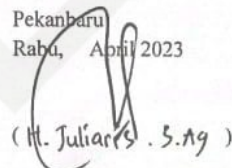 Pekanbaru
Rabu, April 2023
( H. Juliar's . S.Ag )